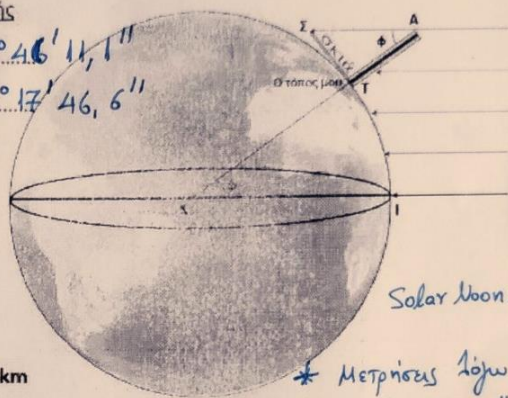 ής
° 46' 11,1"
° 17' 46,6"
Σ
Α
Σκιά
φ
Ο τόπος μου
Τ
Κ
Ι
Solar Noon
km
* Μετρήσεις λόγω